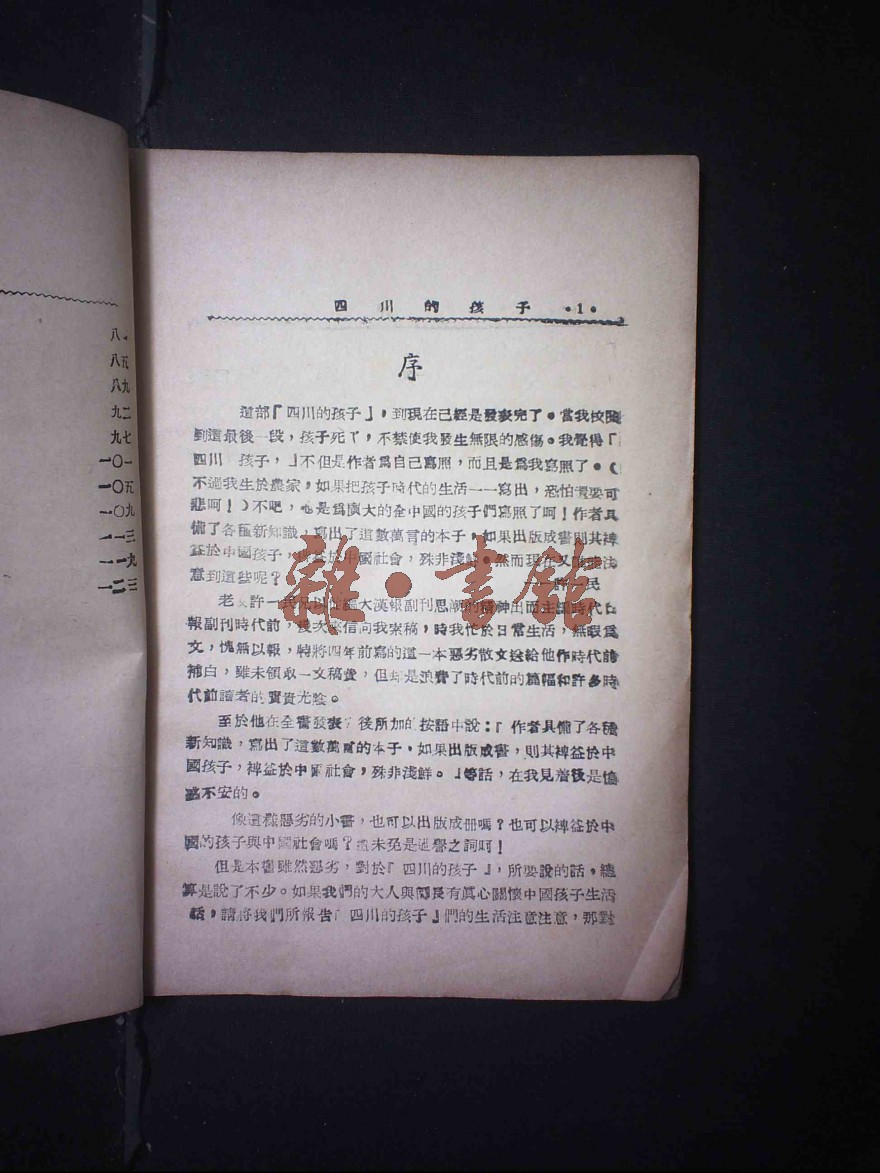 八
八五
八九
九二
九七
一〇一
一〇五
一〇九
一一三
一一九
一二三
四川的孩子 •1•
序
這部「四川的孩子」，到現在已經是發表完了。當我校閱
到這最後一段，孩子死了，不禁使我發生無限的感傷。我覺得「
四川 孩子，」不但是作者爲自己寫照，而且是爲我寫照了。（
不過我生於農家，如果把孩子時代的生活一一寫出，恐怕還要可
悲呵！）不吧，也是爲廣大的全中國的孩子們寫照了呵！作者具
備了各種新知識，寫出了這數萬言的本子，如果出版成書則其裨
益於中國孩子，裨益於中國社會，殊非淺鮮。然而現在又誰能注
意到這些呢？ ——許一民
老友許一民兄以他編大漢報副刊思潮的精神出而主編時代日
報副刊時代前，屢次來信向我索稿，時我忙於日常生活，無暇爲
文，愧無以報，特將四年前寫的這一本惡劣散文送給他作時代前
補白，雖未領取一文稿費，但却是浪費了時代前的篇幅和許多時
代前讀者的寶貴光陰。
至於他在全書發表了後所加的按語中說：「作者具備了各種
新知識，寫出了這數萬言的本子，如果出版成書，則其裨益於中
國孩子，裨益於中國社會，殊非淺鮮。」等話，在我見着後是惶
惑不安的。
像這樣惡劣的小書，也可以出版成冊嗎？也可以裨益於中
國的孩子與中國社會嗎？這未免是過譽之詞呵！
但是本書雖然惡劣，對於「四川的孩子」，所要說的話，總
算是說了不少。如果我們的大人與閣長有眞心關懷中國孩子生活
話，請將我們所報告「四川的孩子」們的生活注意注意，那對
雜•書館